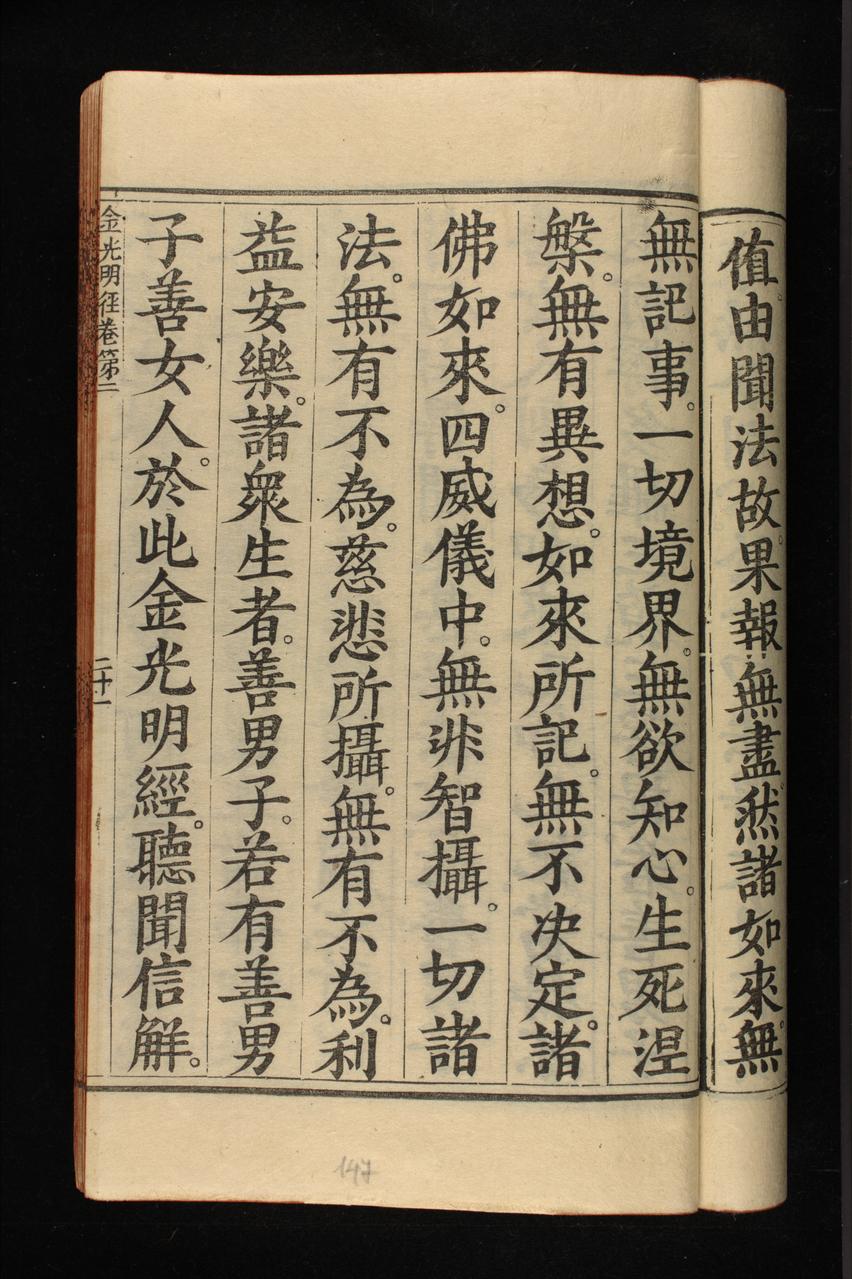 值由聞法故果報無盡然諸如來無
無記事。一切境界。無欲知心。生死涅
槃。無有異想。如來所記。無不決定。諸
佛如來。四威儀中。無非智攝。一切諸
法。無有不為。慈悲所攝。無有不為。利
益安樂。諸衆生者。善男子。若有善男
子善女人。於此金光明經。聽聞信解。
金光明徑卷第二
二十一
147